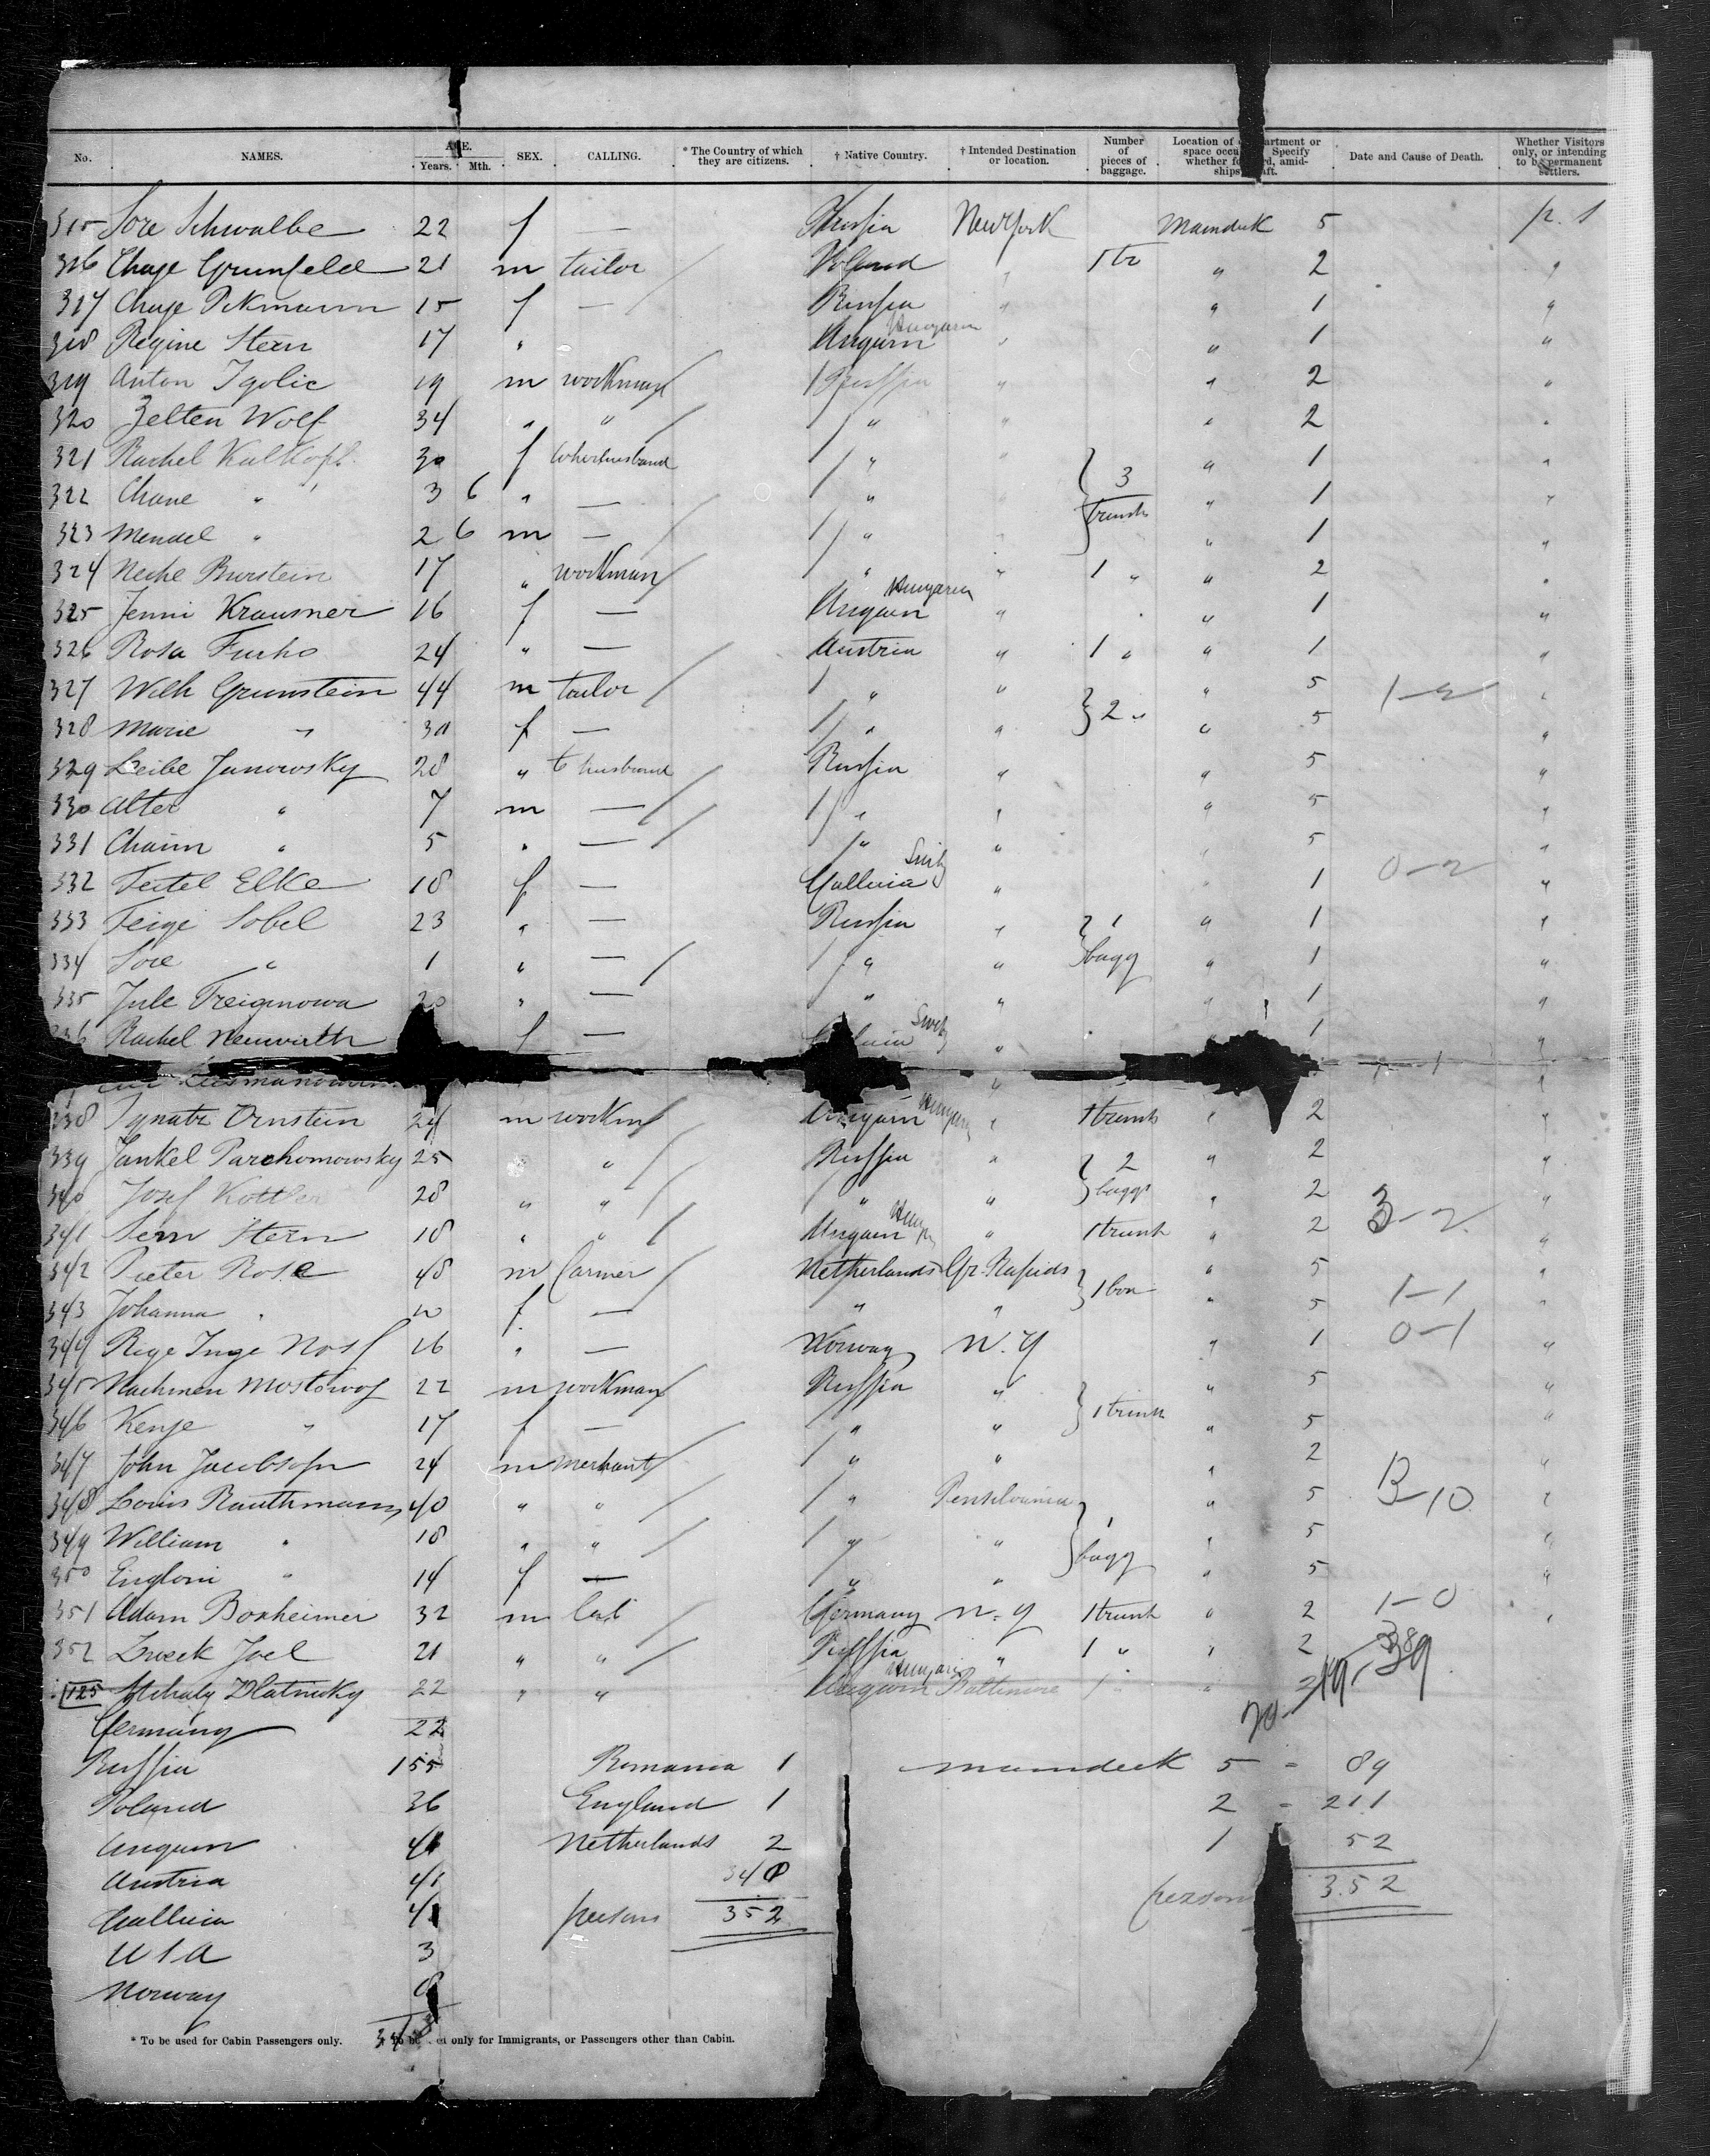 No. NAMES. AGE. Years. Mth. SEX. CALLING. * The Country of which they are citizens. † Native Country. † Intended Destination or location. Number of pieces of baggage. Location of space Specify whether amidships aft. Date and Cause of Death. Whether Visitors only, or intending to be permanent settlers.
315 Sore Schwalbe 22 f — Russia New York Maindeck 5 p. s
316 Chaje Grunfeld 21 m tailor Poland " 1 tr " 2 "
317 Chaje Pikmann 15 f — Russia " " 1 "
318 Regine Stern 17 " Ungarn Hungaria " " 1 "
319 Anton Igolic 19 m workman Russia " " 2 "
320 Zelten Wolf 34 " " " " " 2 "
321 Rachel Kalkopf 30 f to her husband " " 3 " 1 "
322 Chane " 3 6 " — " " trunks " 1 "
323 Mendel " 2 6 m — " " " 1 "
324 Neche Burstein 17 " workman " " 1 " " 2 "
325 Jenni Krausner 16 f — Ungarn Hungaria " " 1 "
326 Rosa Fuchs 24 " — Austria " 1 " " 1 "
327 Wilh Grunstein 44 m tailor " " 2 " " 5 "
328 Marie " 30 f — " " " 5 "
329 Leibe Janowsky 28 " t husband Russia " " 5 "
330 Alter " 7 m — " " " 5 "
331 Chaim " 5 " — " " " 5 "
332 Teitel Elke 18 f — Gallicia " " 1 0-2 "
333 Feige Sobel 23 " — Russia " 1 " 1 "
334 Sore " 1 " — " " bagg " 1 "
335 Jule Treiginowa 20 " — " " " 1 "
Rachel Neuwirth f — " " 1 "
338 Ignatz Ornstein 24 m workm Ungarn " 1 trunk " 2 "
339 Jankel Parchomowsky 25 " Russia " 2 " 2 "
340 Josef Kottler 28 " " " " baggs " 2 "
341 Stern 18 " " Ungarn " 1 trunk " 2 3-2 "
342 Pieter Rose 48 m farmer Netherlands Gr. Rapids 1 box " 5 "
343 Johanna " f — " " " 5 1-1 "
344 Inge 16 " — Norway N. Y " 1 0-1 "
345 Nachmen Mostowoj 22 m workman Russia " 1 trunk " 5 "
346 Kenje " 17 f — " " " 5 "
347 John Jacobsohn 24 m merchant " " " 2 "
348 Louis Rauthmann 40 " " " Pensilvania 1 " 5 "
349 William " 18 " " " " bagg " 5 "
350 " 14 f — " " " 5 "
351 Adam Boxheimer 32 m lab Germany N. Y 1 trunk " 2 1-0 "
352 Joel 21 " " Russia " 1 " " 2
125 Mihaly Zlatnitzky 22 " " Ungarn Hungaria Baltimore
Germany 22
Russia 155 Romania 1 maindeck 5 - 89
Poland 36 England 1 2 - 211
Ungarn 41 Netherlands 2 1 52
Austria 41 348 person 352
Gallicia 41 persons 352
USA 3
Norway 8
348
* To be used for Cabin Passengers only. only for Immigrants, or Passengers other than Cabin.